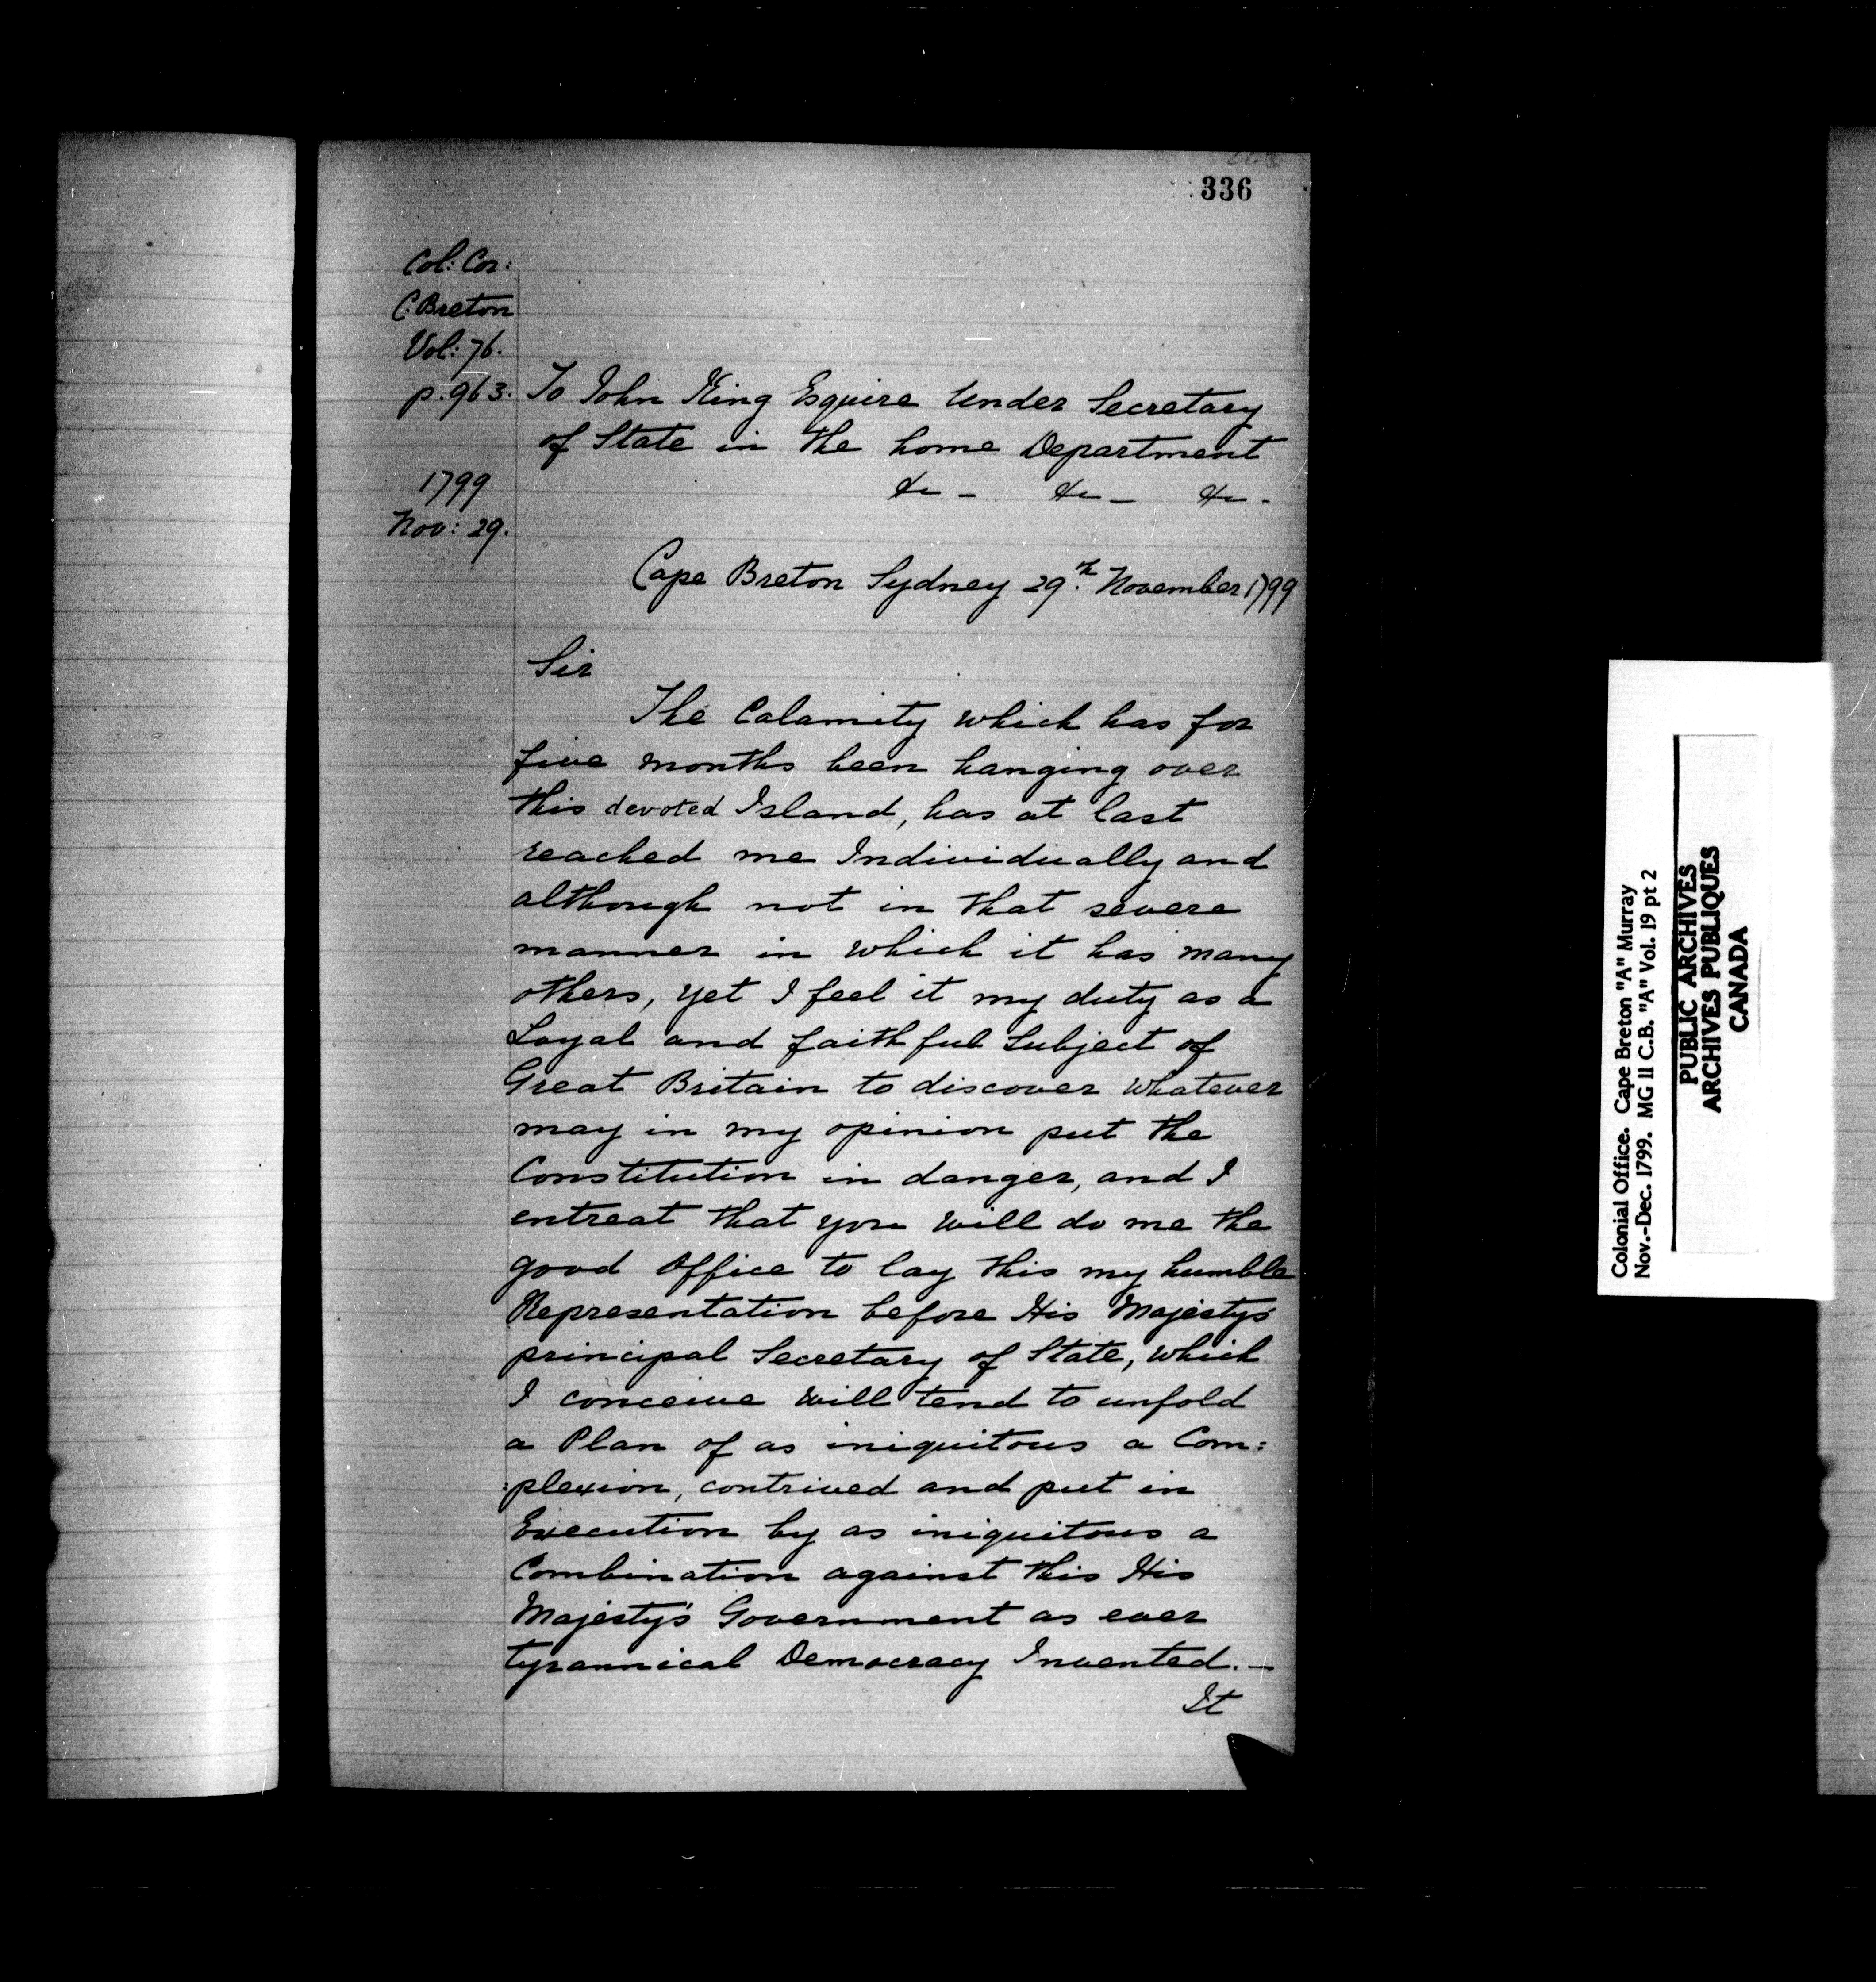 336
Col: Cor:
C. Breton
Vol: 76.
p. 963.
1799
Nov: 29.
To John King Esquire Under Secretary
of State in the home Department
&c - &c - &c -
Cape Breton Sydney 29th November 1799
Sir
The Calamity which has for
five months been hanging over
this devoted Island, has at last
reached me Individually and
although not in that severe
manner in which it has many
others, yet I feel it my duty as a
Loyal and faithful Subject of
Great Britain to discover whatever
may in my opinion put the
Constitution in danger, and I
entreat that you will do me the
good Office to lay this my humble
Representation before His Majesty's
principal Secretary of State, which
I conceive will tend to unfold
a Plan of as iniquitous a Com:
:plexion, contrived and put in
Execution by as iniquitous a
Combination against this His
Majesty's Government as ever
tyrannical Democracy Invented. -
It
Colonial Office. Cape Breton "A" Murray
Nov.-Dec. 1799. MG 11 C.B. "A" Vol. 19 pt 2
PUBLIC ARCHIVES
ARCHIVES PUBLIQUES
CANADA